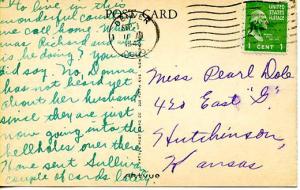 To live in this
wonderful count
we call home. W
was Richard and w
is he doing? you
did say. No, Donna
has not heard yet
about her husband
since they are just
now going into the
hellholes over there
Have sent Sullivan
couple of cards lately
POST CARD
1 CENT 1
Miss Pearl Dole
420 East "G"
Hutchinson,
Kansas